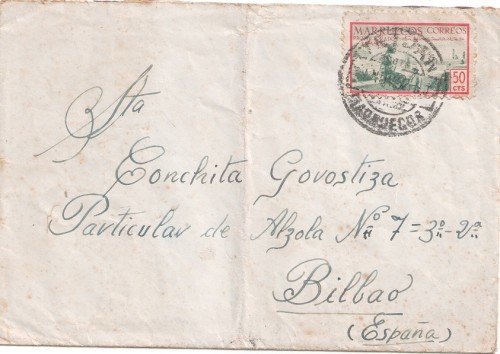 MARRUECOS CORREOS
50
CTS
MARRUECOS
Sta
Conchita Govostiza
Particular de Alzola Nº 7=3º-2ª
Bilbao
(España)